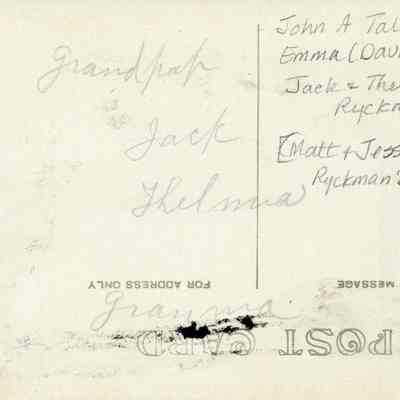 Grandpap
Jack
Thelma
Granma
John A Tal
Emma (Davi
Jack & The
Ryckm
[Matt + Jess
Ryckman's
FOR ADDRESS ONLY
MESSAGE
POST CARD